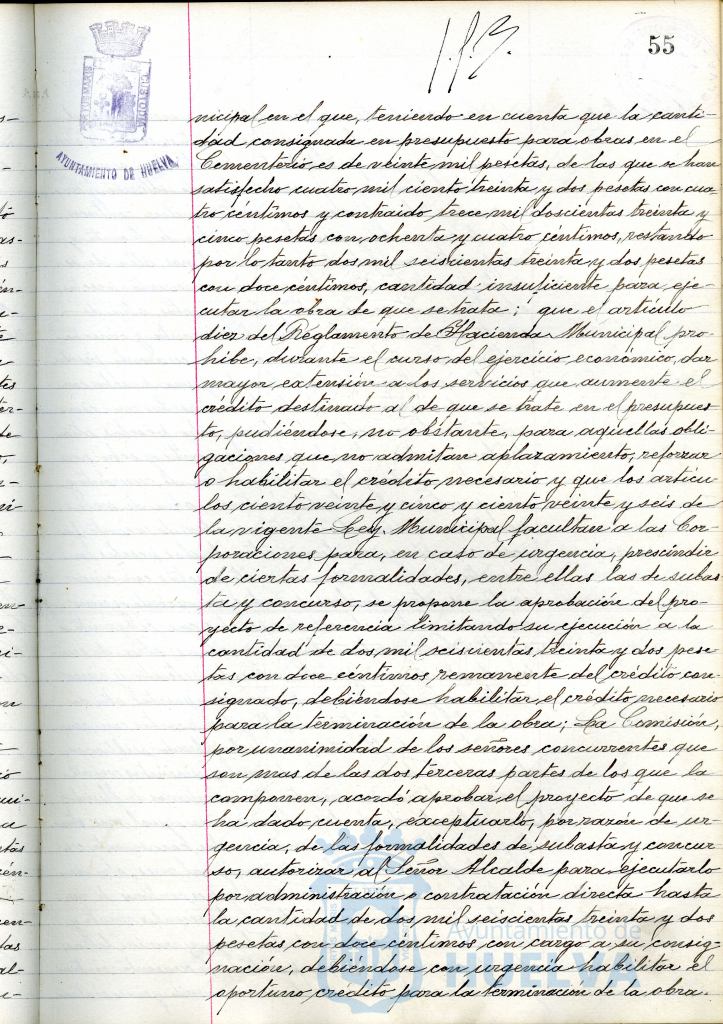 55
PORTUS MARIS
CUSTODIA
AYUNTAMIENTO DE HUELVA
nicipal en el que, teniendo en cuenta que la canti-
dad consignada en presupuesto para obras en el
Cementerio, es de veinte mil pesetas, de las que se han
satisfecho cuatro mil ciento treinta y dos pesetas con cua-
tro céntimos y contraido trece mil doscientas treinta y
cinco pesetas con ochenta y cuatro céntimos, restando
por lo tanto dos mil seiscientas treinta y dos pesetas
con doce céntimos, cantidad insuficiente para eje-
cutar la obra de que se trata; que el artículo
diez del Reglamento de Hacienda Municipal pro-
hibe, durante el curso del ejercicio económico, dar
mayor extensión a los servicios que aumente el
crédito destinado al de que se trate en el presupues-
to, pudiéndose, no obstante, para aquellas obli-
gaciones que no admitan aplazamiento, reforzar
o habilitar el crédito necesario y que los artícu
los ciento veinte y cinco y ciento veinte y seis de
la vigente Ley Municipal facultan a las Cor-
poraciones para, en caso de urgencia, prescindir
de ciertas formalidades, entre ellas las de subas
ta y concurso, se propone la aprobación del pro-
yecto de referencia limitando su ejecución a la
cantidad de dos mil seiscientas treinta y dos pese
tas con doce céntimos remanente del crédito con-
signado, debiéndose habilitar el crédito necesario
para la terminación de la obra; La Comisión,
por unanimidad de los señores concurrentes que
son mas de las dos terceras partes de los que la
componen, acordó aprobar el proyecto de que se
ha dado cuenta, exceptuarlo, por razón de ur-
gencia, de las formalidades de subasta y concur-
so, autorizar al Señor Alcalde para ejecutarlo
por administración o contratación directa hasta
la cantidad de dos mil seiscientas treinta y dos
pesetas con doce céntimos con cargo a su consig-
nación, debiéndose con urgencia habilitar el
oportuno crédito para la terminación de la obra.
Ayuntamiento de
HUELVA